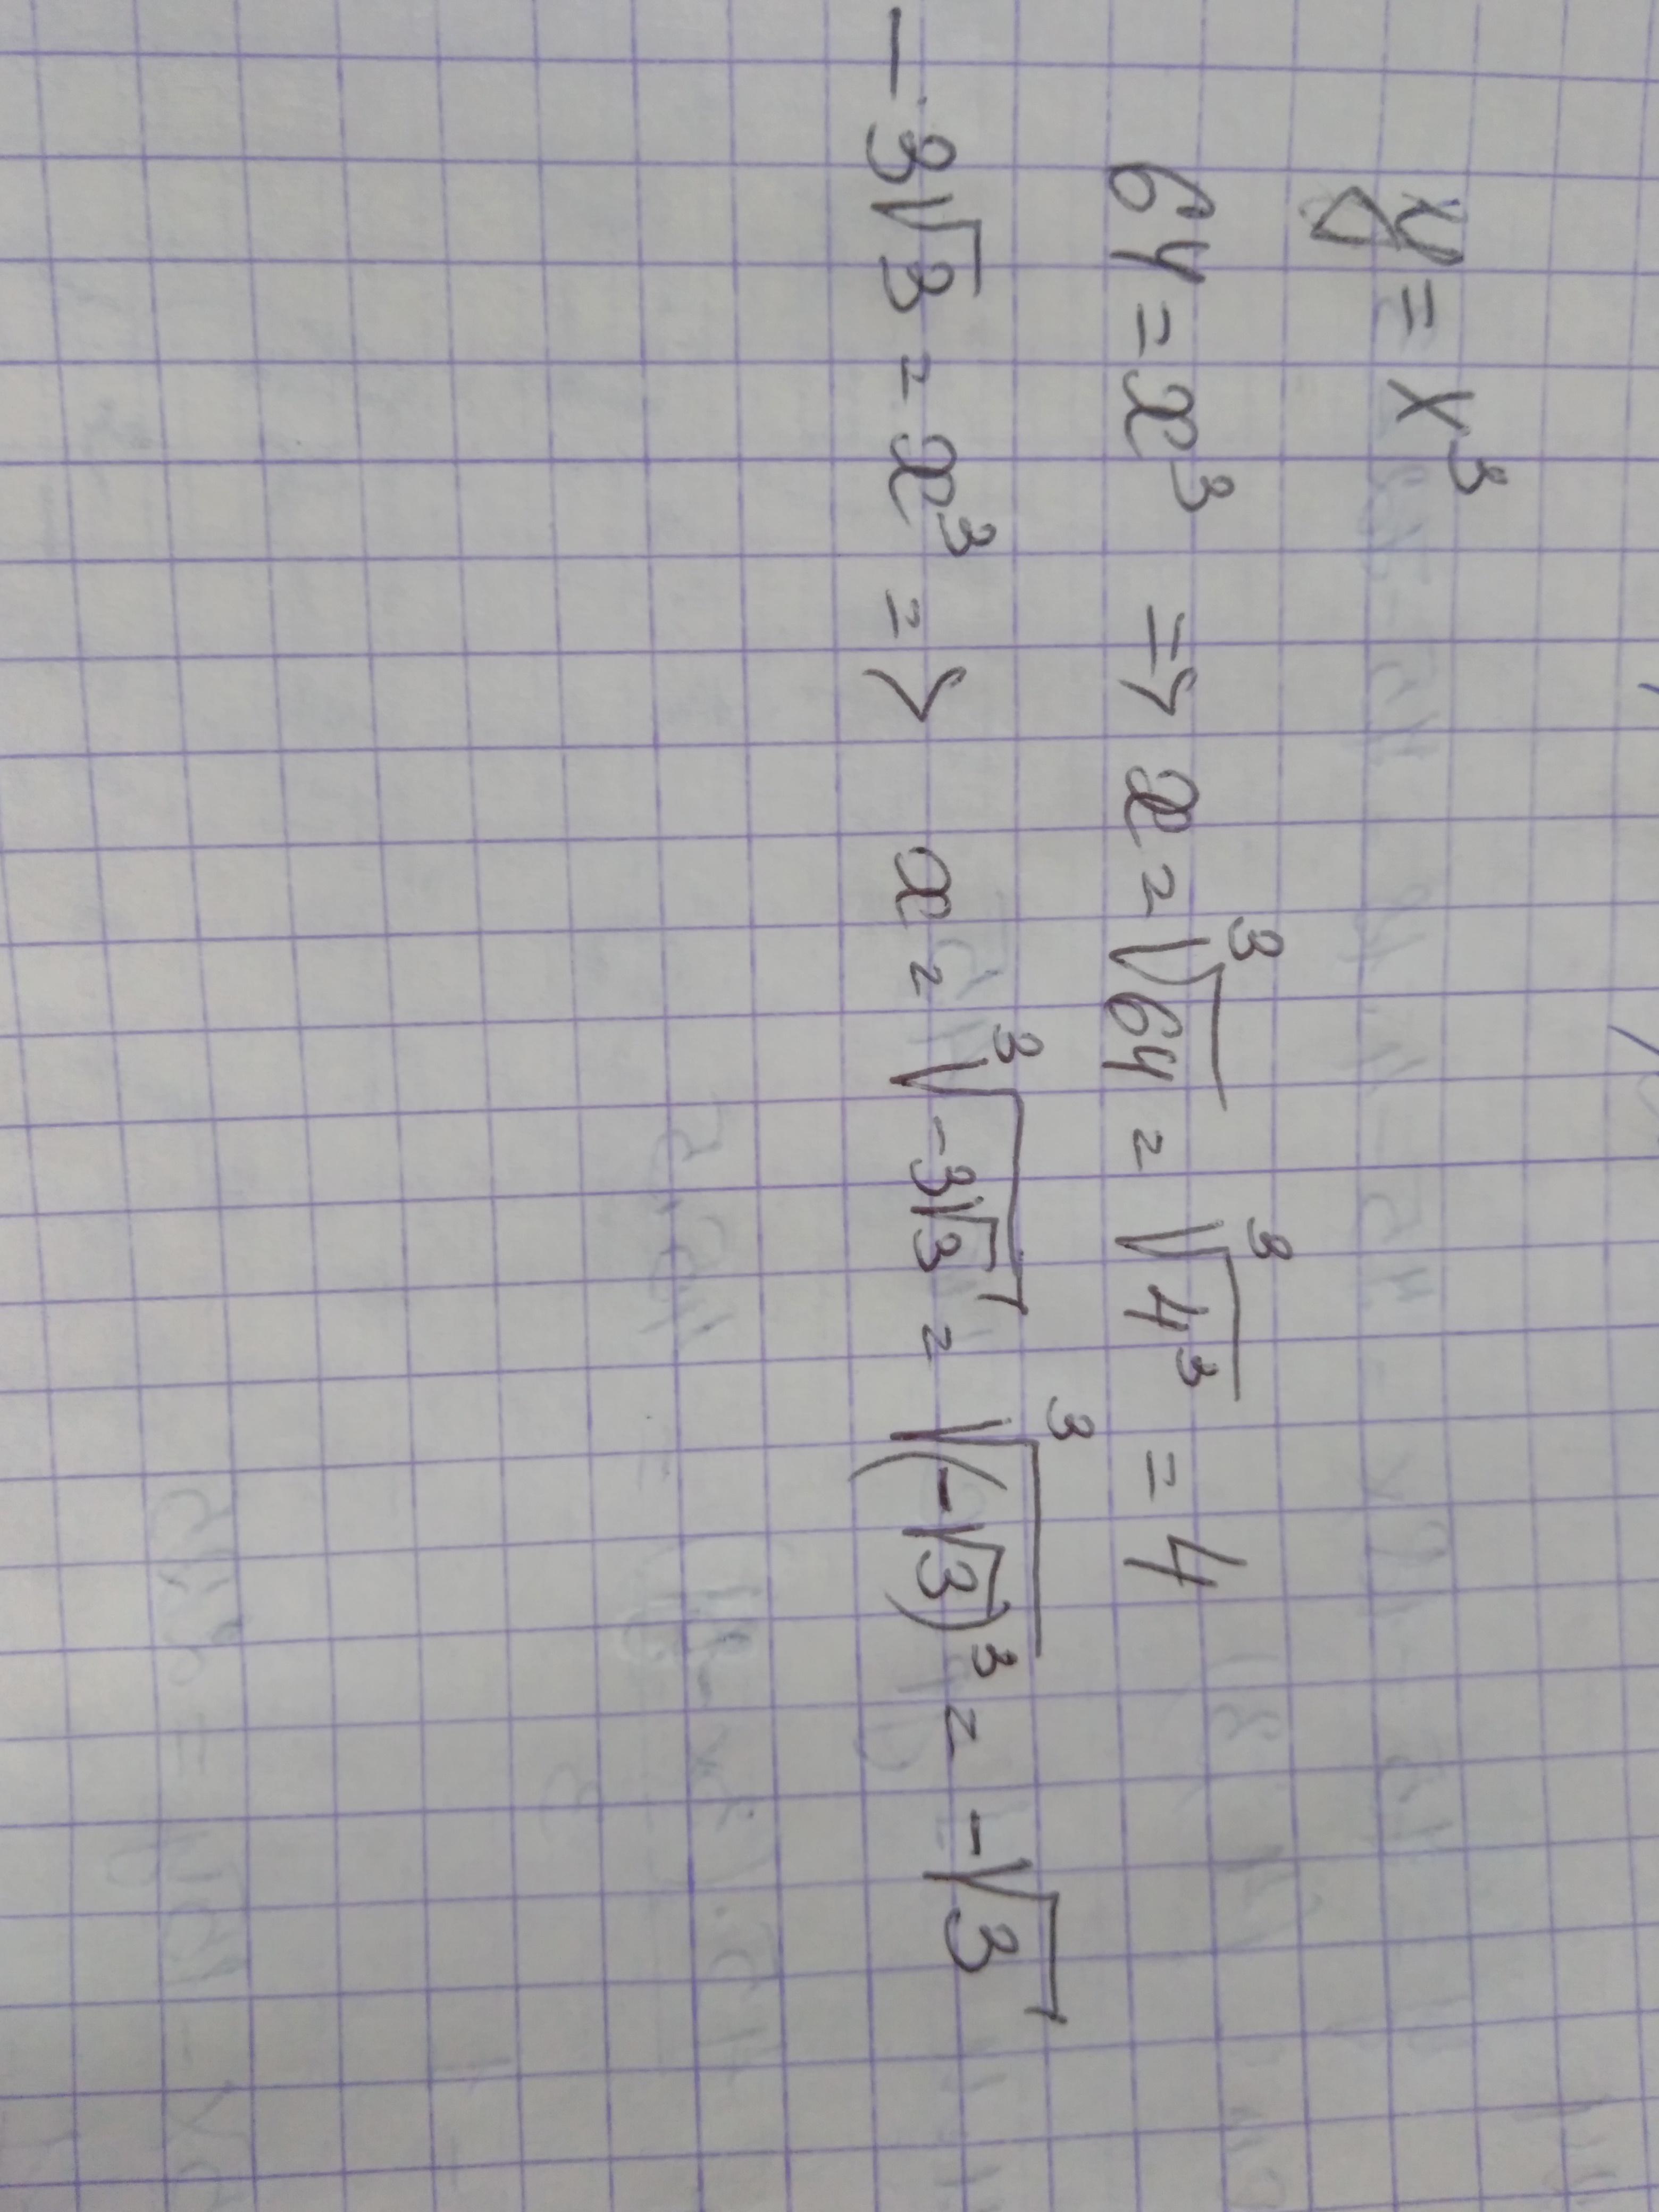 y = x³
64 = x³ => x = ∛64 = ∛4³ = 4
-3√3 = x³ => x = ∛(-3√3) = ∛(-√3)³ = -√3